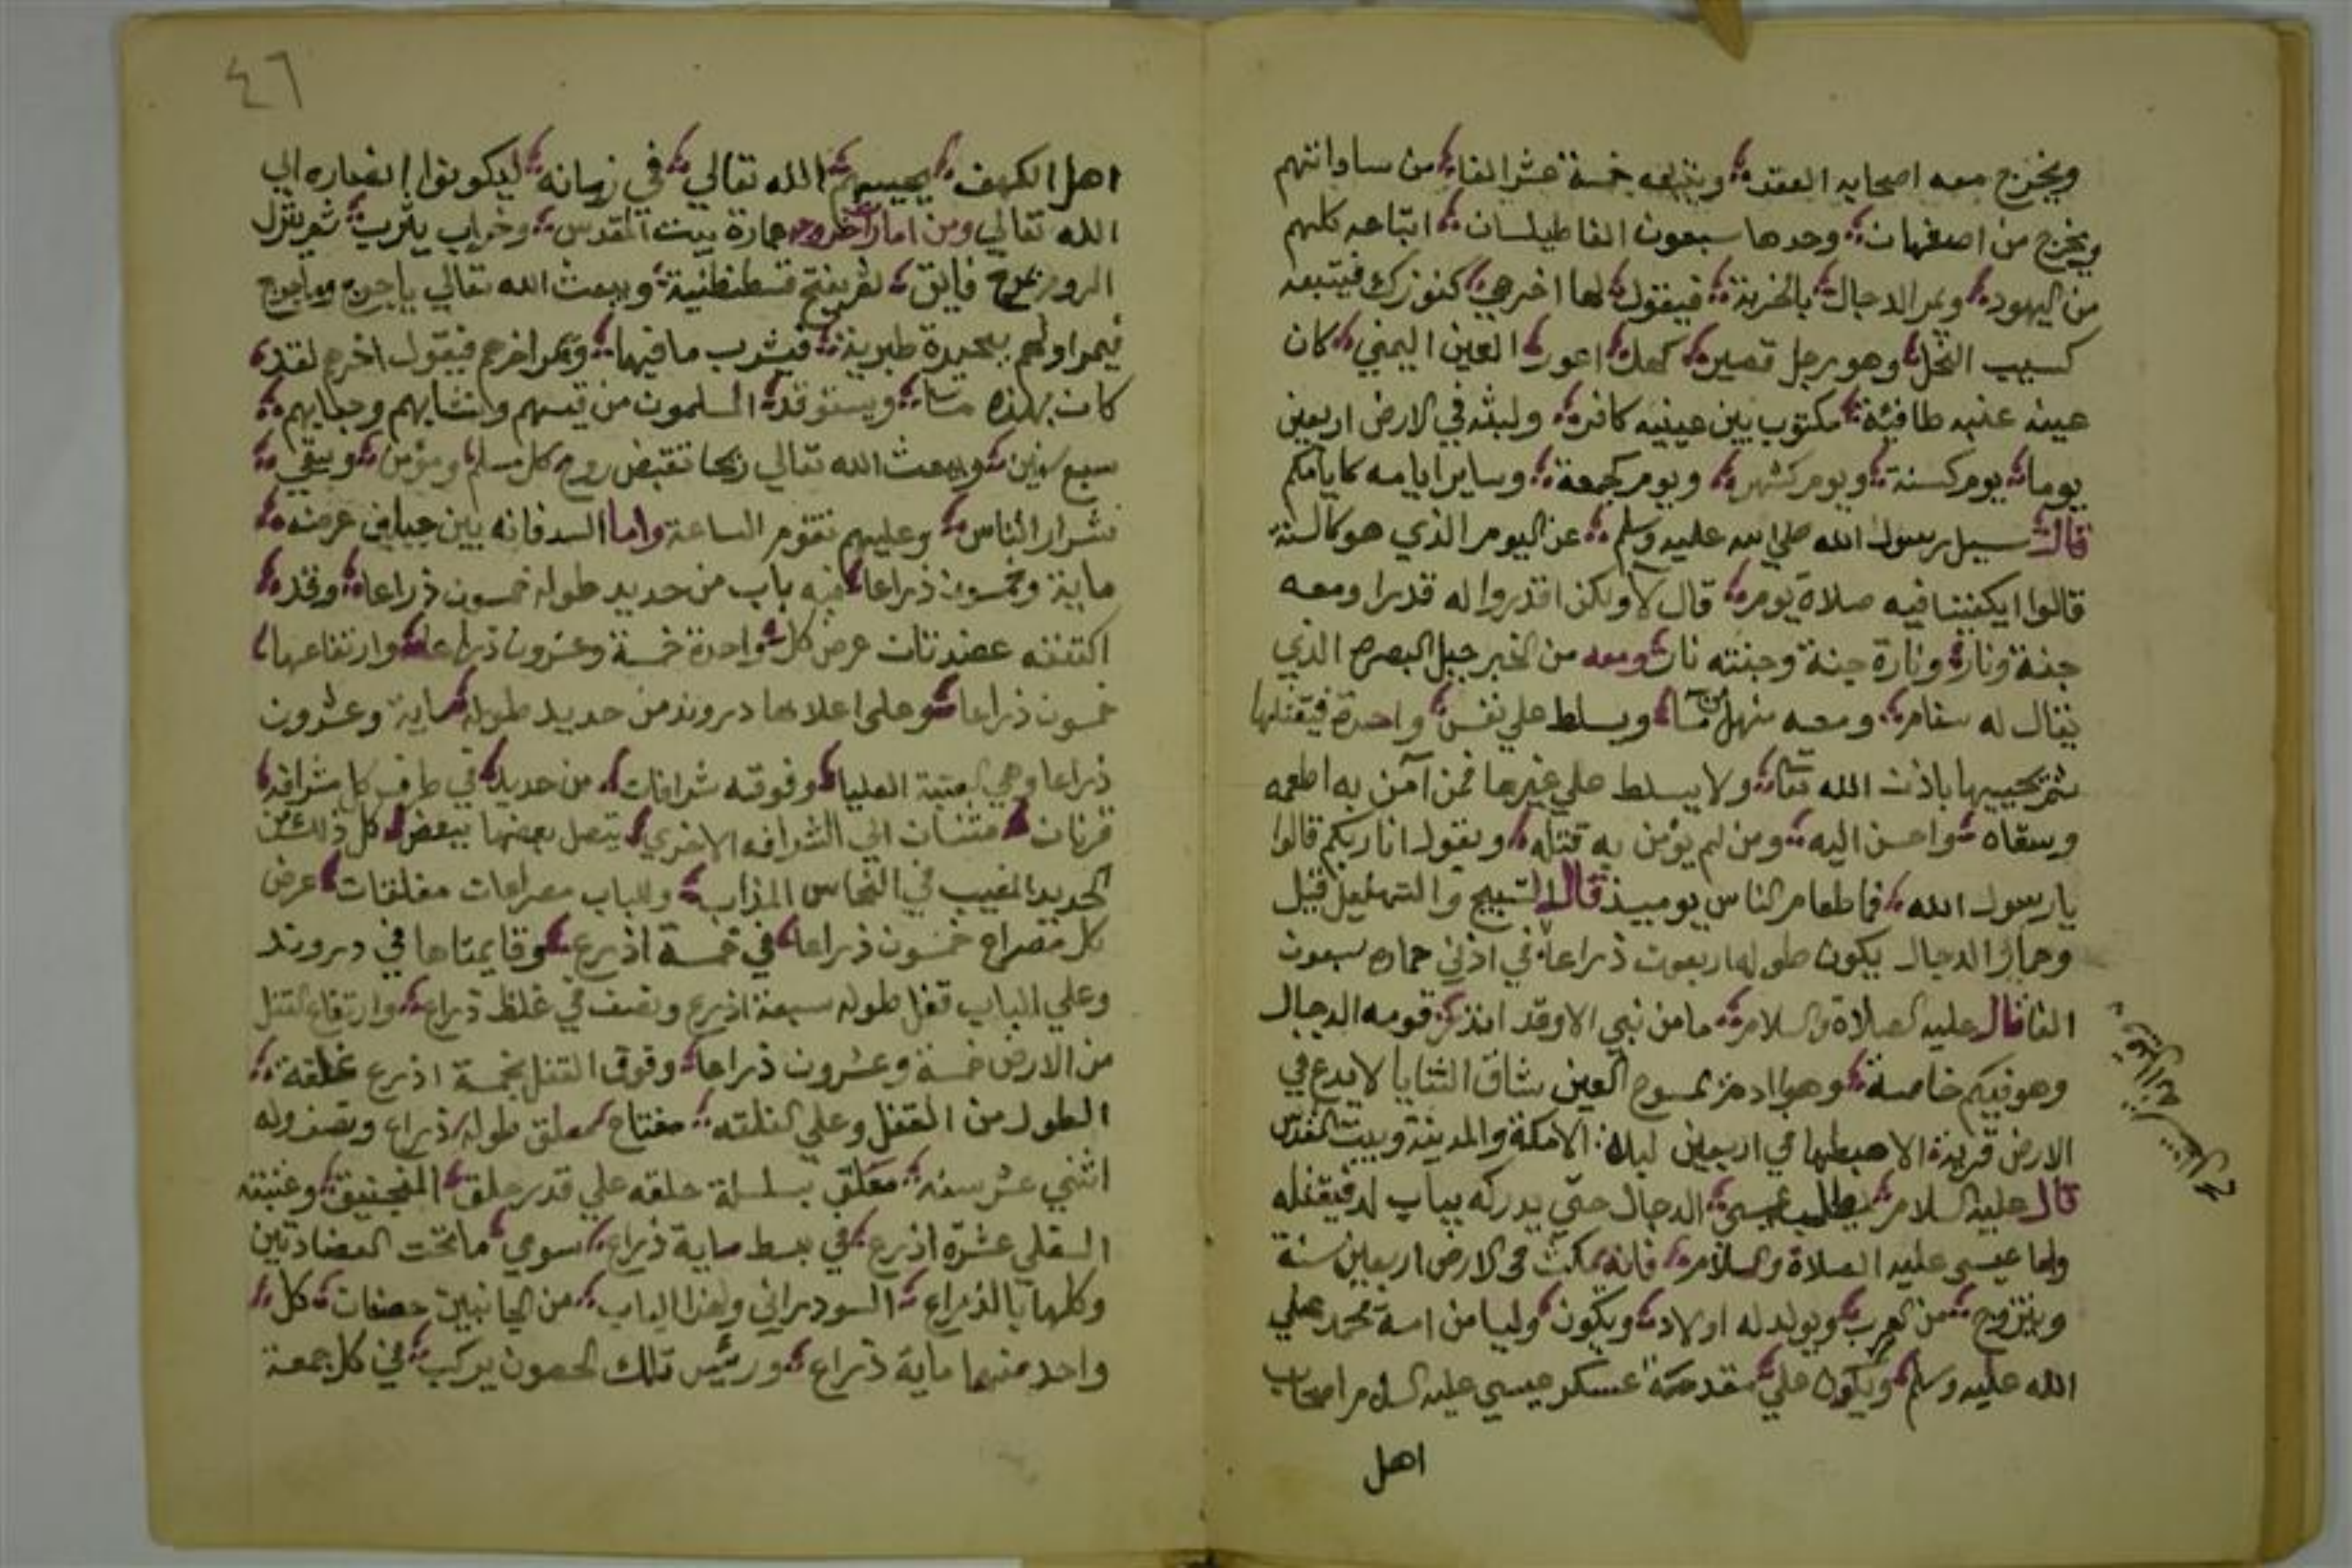 ويخرج معه اصحابه العقد ويتبعه خمسة عشر الفا من ساداتهم
ويخرج من اصفهان وحدها سبعون الفا طيلسان اتباعه كلهم
من اليهود ويمر الدجال بالخربة فيقول لها اخرجي كنوزك فيتبعه
كسيب النحل وهو رجل قصير كهل اعور العين اليمني كان
عينه عنبه طافئة مكتوب بين عينيه كافر ولبثه في الارض اربعين
يوما يوم كسنة ويوم كشهر ويوم كجمعة وساير ايامه كايامكم
قال سيل رسول الله صلي الله عليه وسلم عن اليوم الذي هو كالسنة
قالوا ايكفينا فيه صلاة يوم قال لا ولكن اقدروا له قدرا ومعه
جنة ونار وناره جنة وجنته نار ومعه من الخبر جبل البصره الذي
يقال له سنام ومعه منهل من ما ويسلط علي نفس واحدة فيقتلها
ثم يحييها باذن الله تعا ولا يسلط علي غيرها فمن آمن به اطعمه
وسقاه واحسن اليه ومن لم يؤمن به قتله ويقول انا ربكم قالوا
يا رسول الله فما طعام الناس يوميذ قال التسبيح والتهليل قيل
وحمار الدجال يكون طوله اربعون ذراعا في اذني حماره سبعون
الفا قال عليه الصلاة والسلام ما من نبي الا وقد انذر قومه الدجال
وهو فيكم خاصة وهوا ادهز ممسوح العين شاق الثنايا لا يدع في
الارض قرية الا هبطها في اربعين ليلة الا مكة والمدينة وبيت المقدس
قال عليه السلام يطلب عيسى الدجال حتي يدركه بباب لد فيقتله
واما عيسى عليه الصلاة والسلام فانه يمكث في الارض اربعين سنة
ويتزوج من العرب ويولد له اولاد ويكون وليا من امة محمد صلي
الله عليه وسلم ويكون علي مقدمة عسكر عيسي عليه السلام اصحاب
اهل
٤٦
اهل الكهف يحييهم الله تعالي في زمانه ليكونوا انصاره الي
الله تعالي ومن امارا خروجه عمارة بيت المقدس وخراب يثرب ثم ينزل
الروم بمرج فايق ثم يفتح قسطنطنية ويبعث الله تعالي ياجوج وماجوج
فيمر اولهم ببحيرة طبرية فيشرب ما فيها ويمر اخرهم فيقول اخرهم لقد
كان بهذه ما ويستوقد المسلمون من قسيهم ونشابهم وجبابهم
سبع سنين ويبعث الله تعالي ريحا تقبض روح كل مسلم ومؤمن ويبقي
شرار الناس وعليهم تقوم الساعة واما السد فانه بين جبلين عرضه
ماية وخمسون ذراعا فيه باب من حديد طوله خمسون ذراعا وقد
اكتنفه عضدتان عرض كل واحدة خمسة وعشرون ذراعا وارتفاعها
خمسون ذراعا وعلى اعلاها دروند من حديد طوله ماية وعشرون
ذراعا وهي العتبة العليا وفوقه شرافات من حديد في طرف كل شرافه
قرنان مثنيان الي الشرافه الاخري يتصل بعضها ببعض كل ذلك من
الحديد المغيب في النحاس المذاب وللباب مصراعان مغلقان عرض
كل مصراع خمسون ذراعا في خمسة اذرع وقايمتاها في دروند
وعلي الباب قفل طوله سبعة اذرع ونصف في غلظ ذراع وارتفاع القفل
من الارض خمسة وعشرون ذراعا وفوق القفل بخمسة اذرع غلقه
الطول من القفل وعلي الغلقه مفتاح معلق طوله ذراع ونصف وله
اثني عشر سنه معلق بسلسلة حلقه علي قدر حلق المنجنيق وعتبته
السفلي عشرة اذرع في بسط ماية ذراع سوي ما تحت العضادتين
وكلها بالذراع السوداني ولهذا الباب من الجانبين حصنان كل
واحد منهما ماية ذراع ورئيس تلك الحصون يركب في كل جمعة